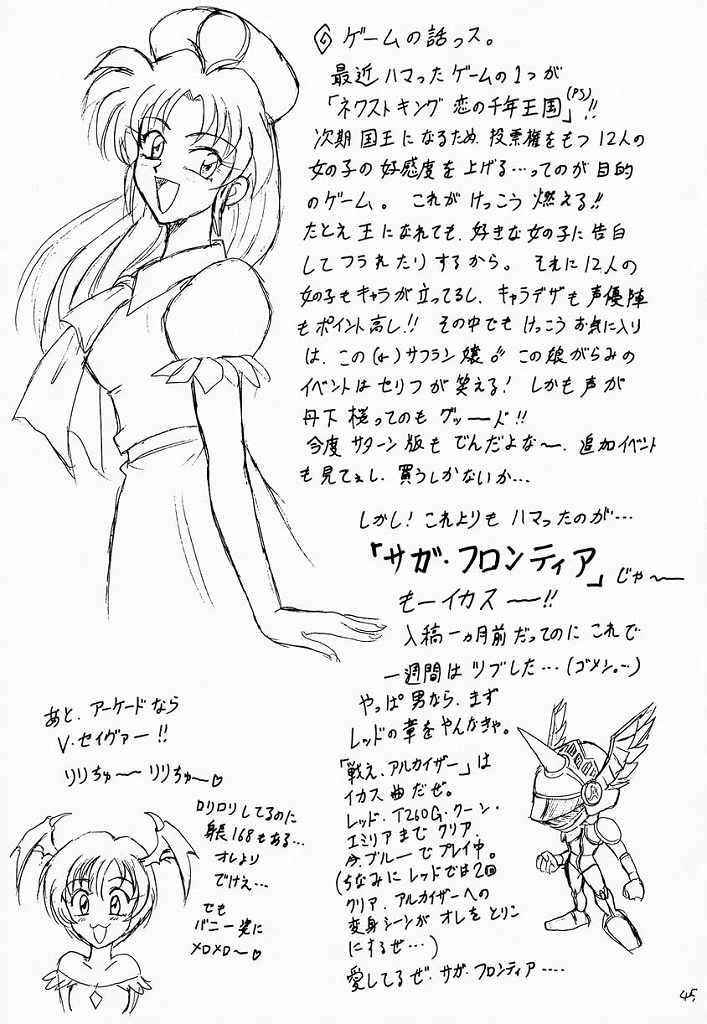 ゲームの話っス。
最近ハマったゲームの1つが
「ネクストキング 恋の千年王国」(PS)!!
次期国王になるため、投票権をもつ12人の
女の子の好感度を上げる…ってのが目的
のゲーム。これがけっこう燃える!!
たとえ王になれても、好きな女の子に告白
してフラれたりするから。それに12人の
女の子もキャラが立ってるし、キャラデザも声優陣
もポイント高し!! その中でもけっこうお気に入り
は、この(←)サフラン嬢。この娘がらみの
イベントはセリフが笑える! しかも声が
丹下桜ってのもグッーード!!
今度サターン版もでんだよな〜、追加イベント
も見てぇし、買うしかないか…
しかし! これよりもハマったのが…
「サガ・フロンティア」じゃ〜
もーイカス〜!!
入稿一ヵ月前だってのにこれで
一週間はツブした…(ゴメン。…)
やっぱ男なら、まず
レッドの章をやんなきゃ。
「戦え、アルカイザー」は
イカス曲だぜ。
レッド、T260G、クーン、
エミリアまでクリア、
今、ブルーでプレイ中。
(ちなみにレッドでは2回
クリア、アルカイザーへの
変身シーンがオレをとりこ
にするぜ…)
愛してるぜ、サガ・フロンティア‥‥
あと、アーケードなら
V.セイヴァー!!
リリちゅ〜リリちゅ〜♡
ロリロリしてるのに
身長168もある…
オレより
でけえ…
でも
バニー姿に
メロメロ〜♡
45.